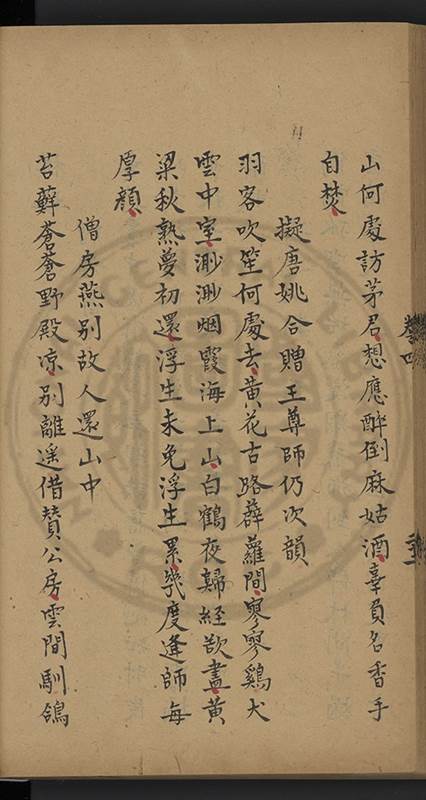 山何處訪茅君想應醉倒麻姑酒辜負名香手
自焚
擬唐姚合贈王尊師仍次韻
羽客吹笙何處去黃花古路薜蘿間寥寥鷄犬
雲中室渺渺烟霞海上山白鶴夜歸經欲盡黃
梁秋熟夢初還浮生未免浮生累幾度逢師每
厚顔
僧房燕別故人還山中
苔蘚蒼蒼野殿凉別離遥借贊公房雲間馴鴿